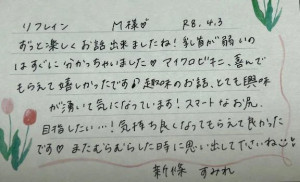 リフレイン M様♡ R8.4.3
ずっと楽しくお話出来ましたね!乳首が弱いの
はすぐに分かっちゃいました♡マイクロビキニ、喜んで
もらえて嬉しかったです♪趣味のお話、とても興味
が湧いて気になっています!スマートなお尻、
目指したい…!気持ち良くなってもらえて良かった
です♡またむらむらした時に思い出してくださいね◡̈
新條 すみれ